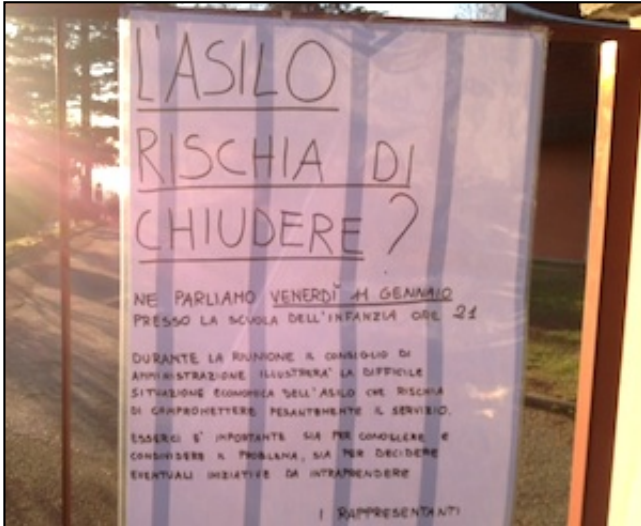 L'ASILO
RISCHIA DI
CHIUDERE?
NE PARLIAMO VENERDÌ 11 GENNAIO
PRESSO LA SCUOLA DELL'INFANZIA ORE 21
DURANTE LA RIUNIONE IL CONSIGLIO DI
AMMINISTRAZIONE ILLUSTRERA' LA DIFFICILE
SITUAZIONE ECONOMICA DELL'ASILO CHE RISCHIA
DI COMPROMETTERE PESANTEMENTE IL SERVIZIO.
ESSERCI E' IMPORTANTE SIA PER CONOSCERE E
CONDIVIDERE IL PROBLEMA, SIA PER DECIDERE
EVENTUALI INIZIATIVE DA INTRAPRENDERE
I RAPPRESENTANTI